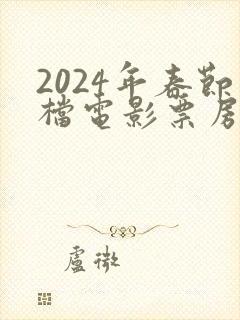 2024年春節
檔電影票房
盧微